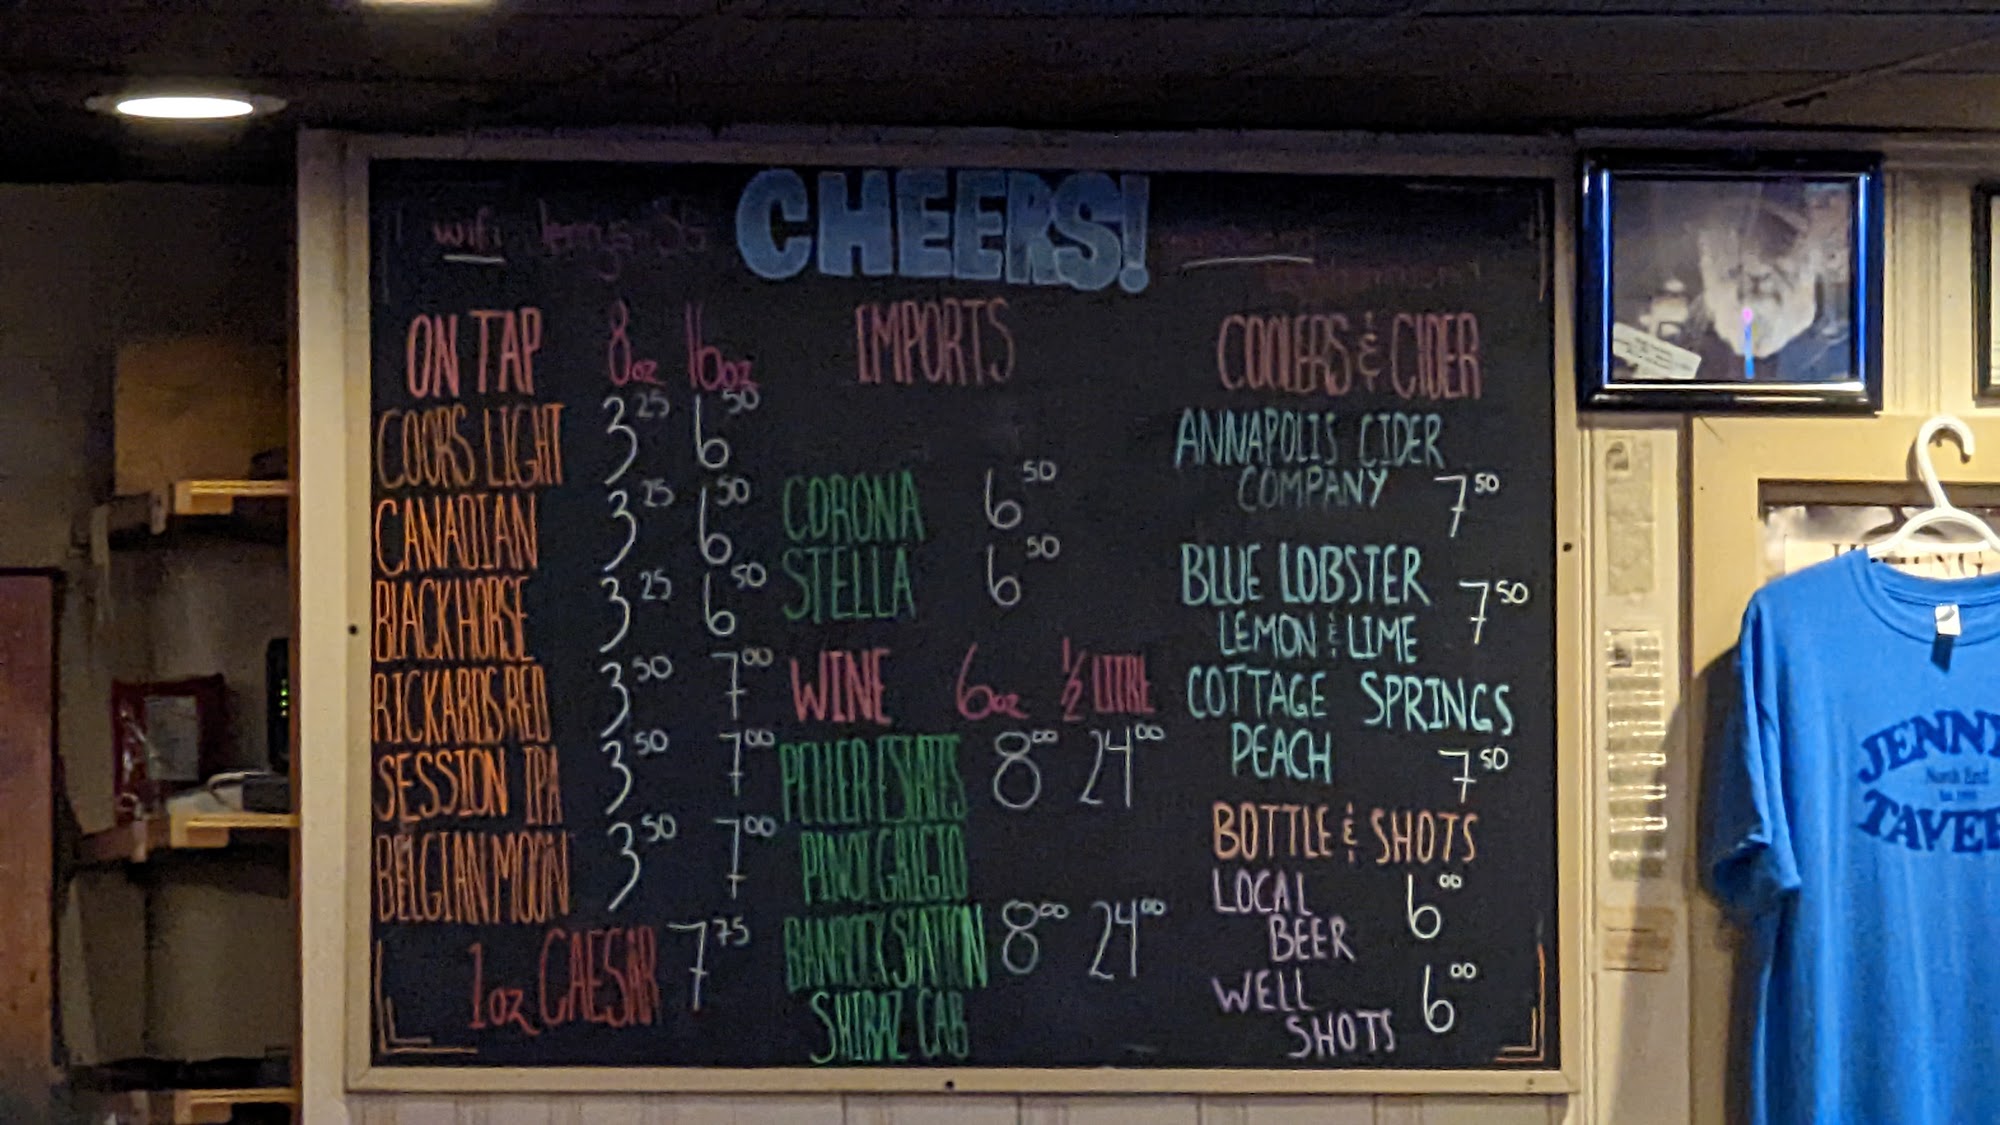 CHEERS!
wifi
ON TAP 8oz 16oz
COORS LIGHT 3.25 6.50
CANADIAN 3.25 6.50
BLACKHORSE 3.25 6.50
RICKARDS RED 3.50 7.00
SESSION IPA 3.50 7.00
BELGIAN MOON 3.50 7.00
1oz CAESAR 7.75
IMPORTS
CORONA 6.50
STELLA 6.50
WINE 6oz 1/2 LITRE
PELLER ESTATES 8.00 24.00
PINOT GRIGIO
BANROCK STATION 8.00 24.00
SHIRAZ CAB
COOLERS & CIDER
ANNAPOLIS CIDER
COMPANY 7.50
BLUE LOBSTER 7.50
LEMON & LIME
COTTAGE SPRINGS
PEACH 7.50
BOTTLE & SHOTS
LOCAL 6.00
BEER
WELL 6.00
SHOTS
JENNY
North End
TAVE